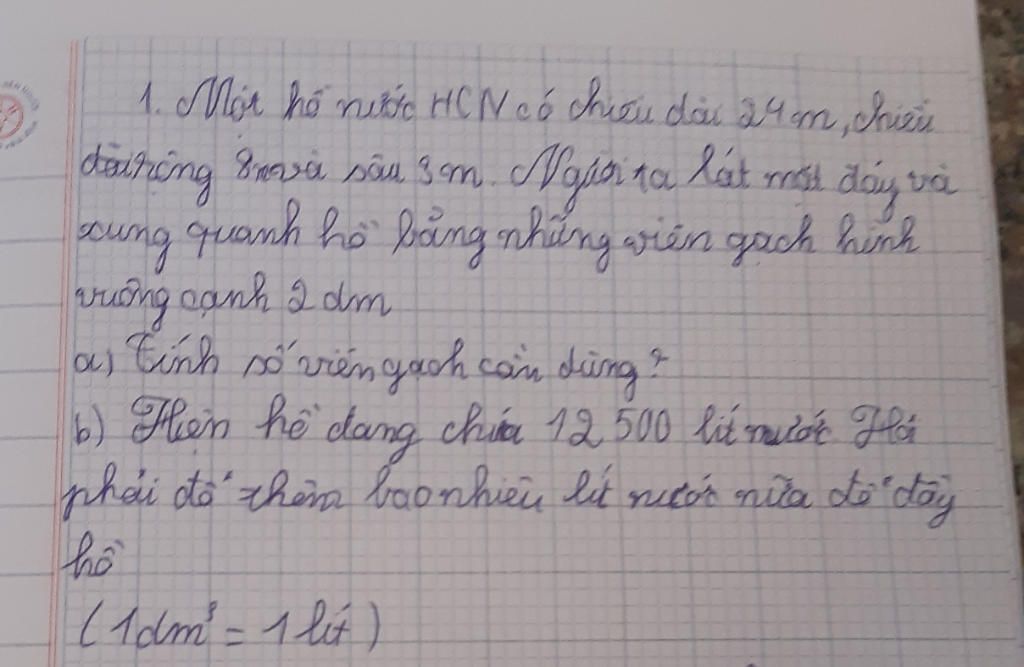 1. Một hồ nước HCN có chiều dài 24 m, chiều
rộng 8m và sâu 3 m. Người ta lát mặt đáy và
xung quanh hồ bằng những viên gạch hình
vuông cạnh 2 dm
a) Tính số viên gạch cần dùng?
b) Hiện hồ đang chứa 12 500 lít nước Hỏi
phải đổ thêm bao nhiêu lít nước nữa để đầy
hồ
(1dm³ = 1 lít)